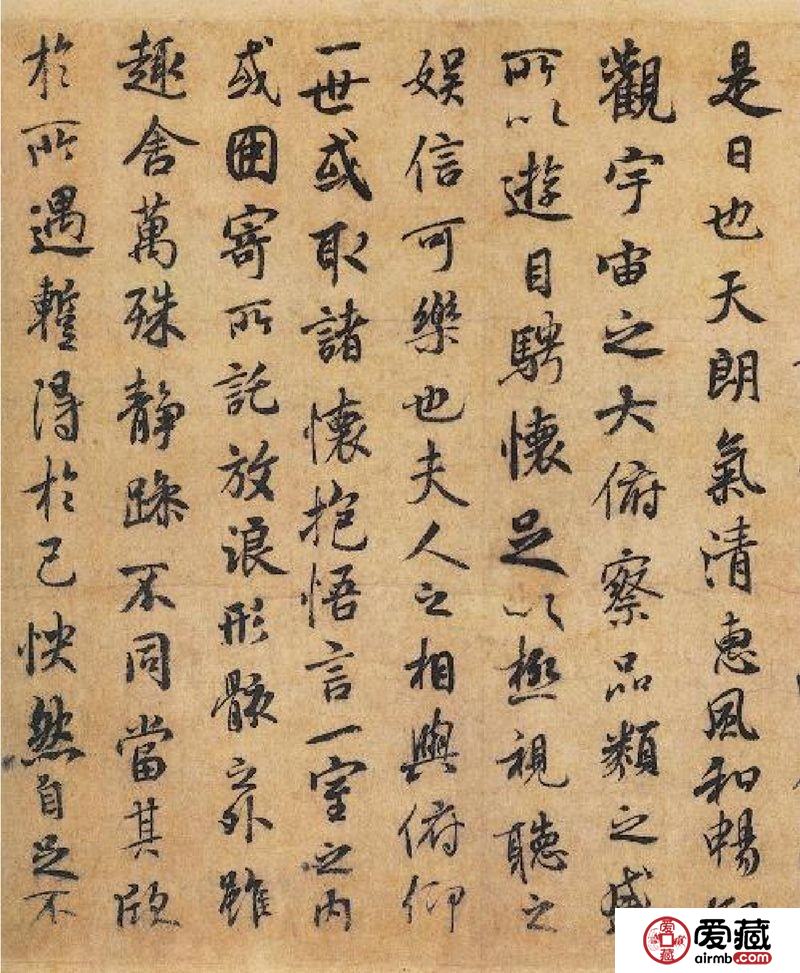 是日也天朗氣清惠風和暢仰
觀宇宙之大俯察品類之盛
所以遊目騁懷足以極視聽之
娛信可樂也夫人之相與俯仰
一世或取諸懷抱悟言一室之内
或因寄所託放浪形骸之外雖
趣舍萬殊静躁不同當其欣
於所遇蹔得於己怏然自足不
爱藏
airmb.com